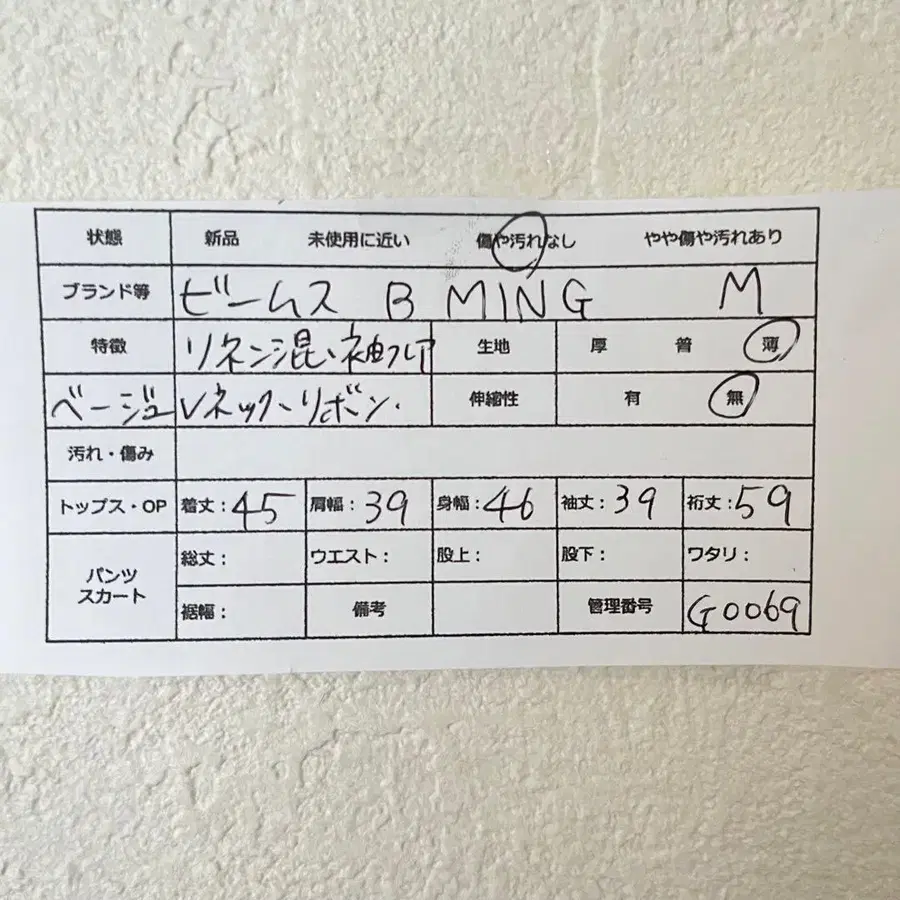 状態 新品 未使用に近い 傷や汚れなし やや傷や汚れあり
ブランド等 ビームス B MING M
特徴 リネン混、袖フレア 生地 厚 普 薄
ベージュ Vネック、リボン. 伸縮性 有 無
汚れ・傷み
トップス・OP 着丈：45 肩幅：39 身幅：46 袖丈：39 裄丈：59
パンツ 総丈： ウエスト： 股上： 股下： ワタリ：
スカート 裾幅： 備考 管理番号 G0069